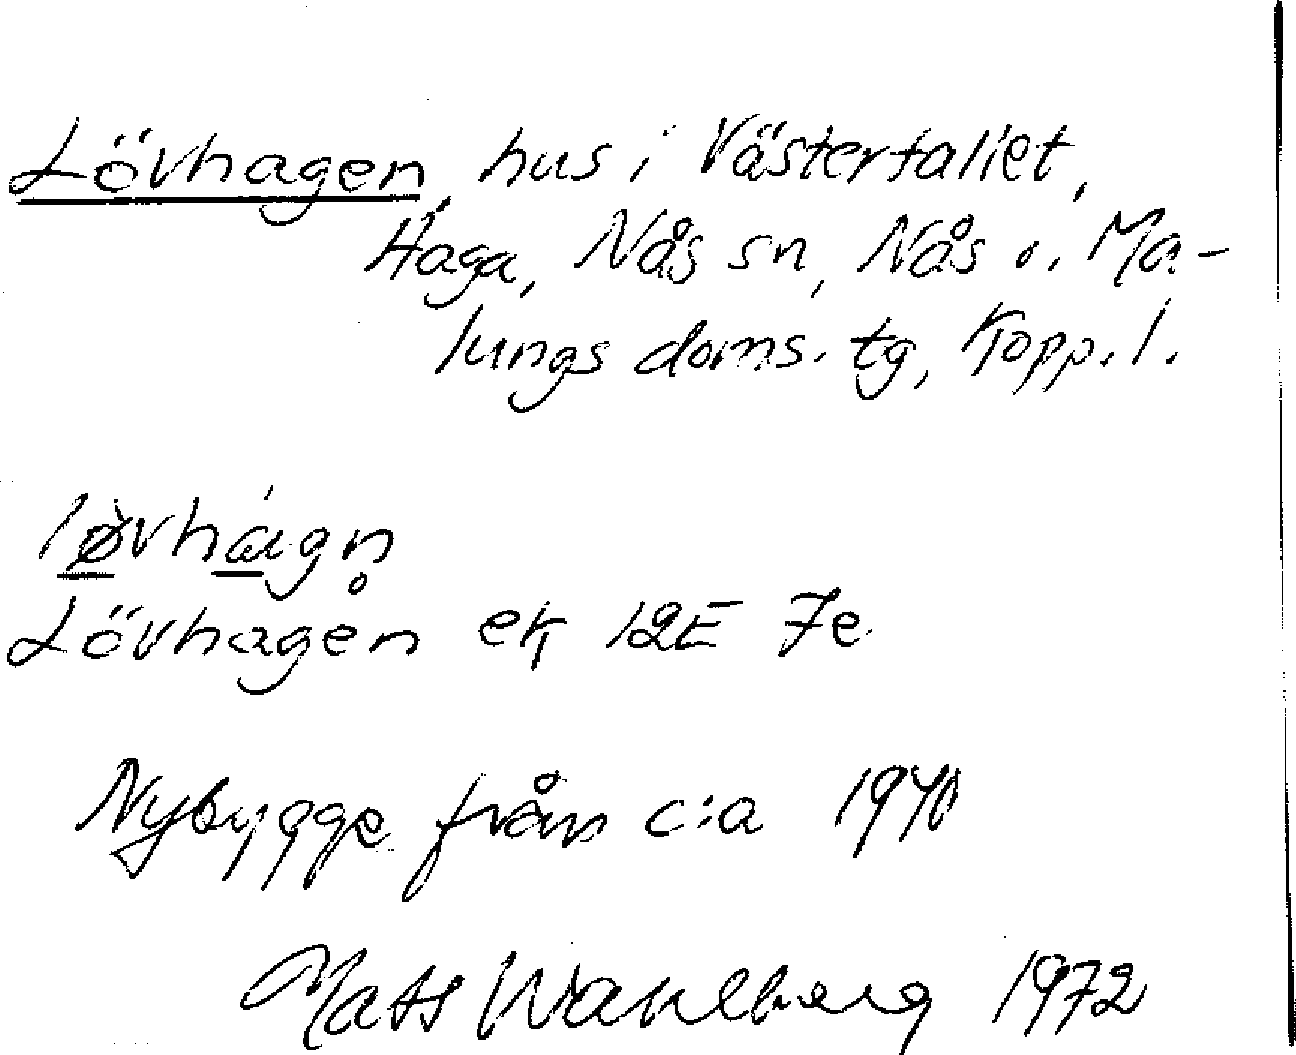 Lövhagen, hus i Västerfallet,
Haga, Nås sn, Nås o. Ma-
lungs doms. tg, Kopp. l.
lø̀vhágn̥
Lövhagen ek 12E 7e
Nybygge från c:a 1940
Mats Wahlberg 1972